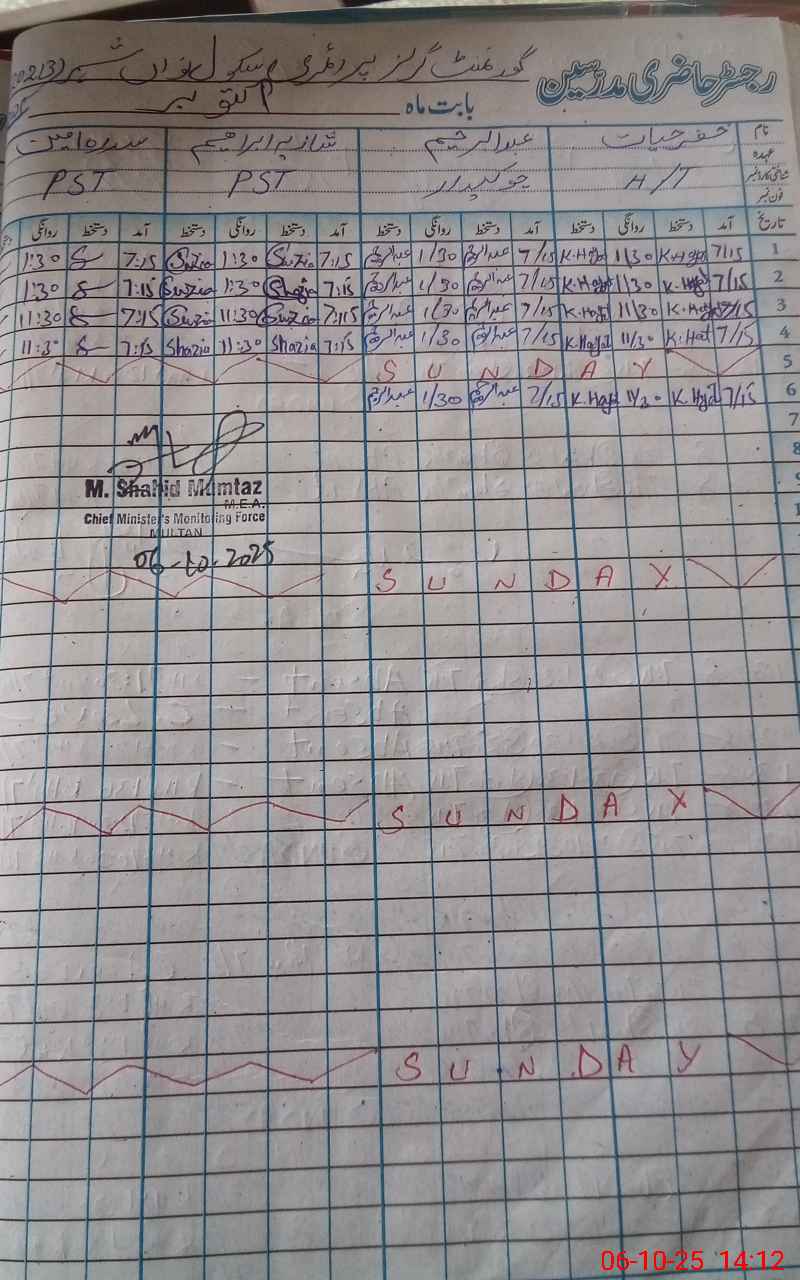 رجسٹر حاضری مدرسین گورنمنٹ گرلز پرائمری سکول نواں شہر
بابت ماہ اکتوبر
نام خضر حیات عبدالرحیم شازیہ ابراہیم سدرہ امین
عہدہ
شناختی کارڈ نمبر H/T چوکیدار PST PST
فون نمبر
تاریخ آمد دستخط روانگی دستخط آمد دستخط روانگی دستخط آمد دستخط روانگی دستخط آمد دستخط روانگی
1 7/15 K.Hayat 11/30 K.Hayat 7/15 عبدالرحیم 1/30 عبدالرحیم 7:15 Suzia 1:30 Suzia 7:15 1:30
2 7/15 K.Hayat 11/30 K.Hayat 7/15 عبدالرحیم 1/30 عبدالرحیم 7:15 1:30 Suzia 7:15 1:30
3 7/15 K.Hayat 11/30 K.Hayat 7/15 عبدالرحیم 1/30 عبدالرحیم 7:15 Suzia 11:30 Suzia 7:15 11:30
4 7/15 K.Hat 11/30 K.Hayat 7/15 عبدالرحیم 1/30 عبدالرحیم 7:15 Shazia 11:30 Shazia 7:15 11:30
5 S U N D A Y
6 7/15 K.Hyat K.Hayat 7/15 عبدالرحیم 1/30 عبدالرحیم
7
8
M. Shahid Mumtaz
M.E.A.
Chief Minister's Monitoring Force
MULTAN
06-10-2025
S U N D A Y
S U N D A Y
S U N D A Y
06-10-25 14:12